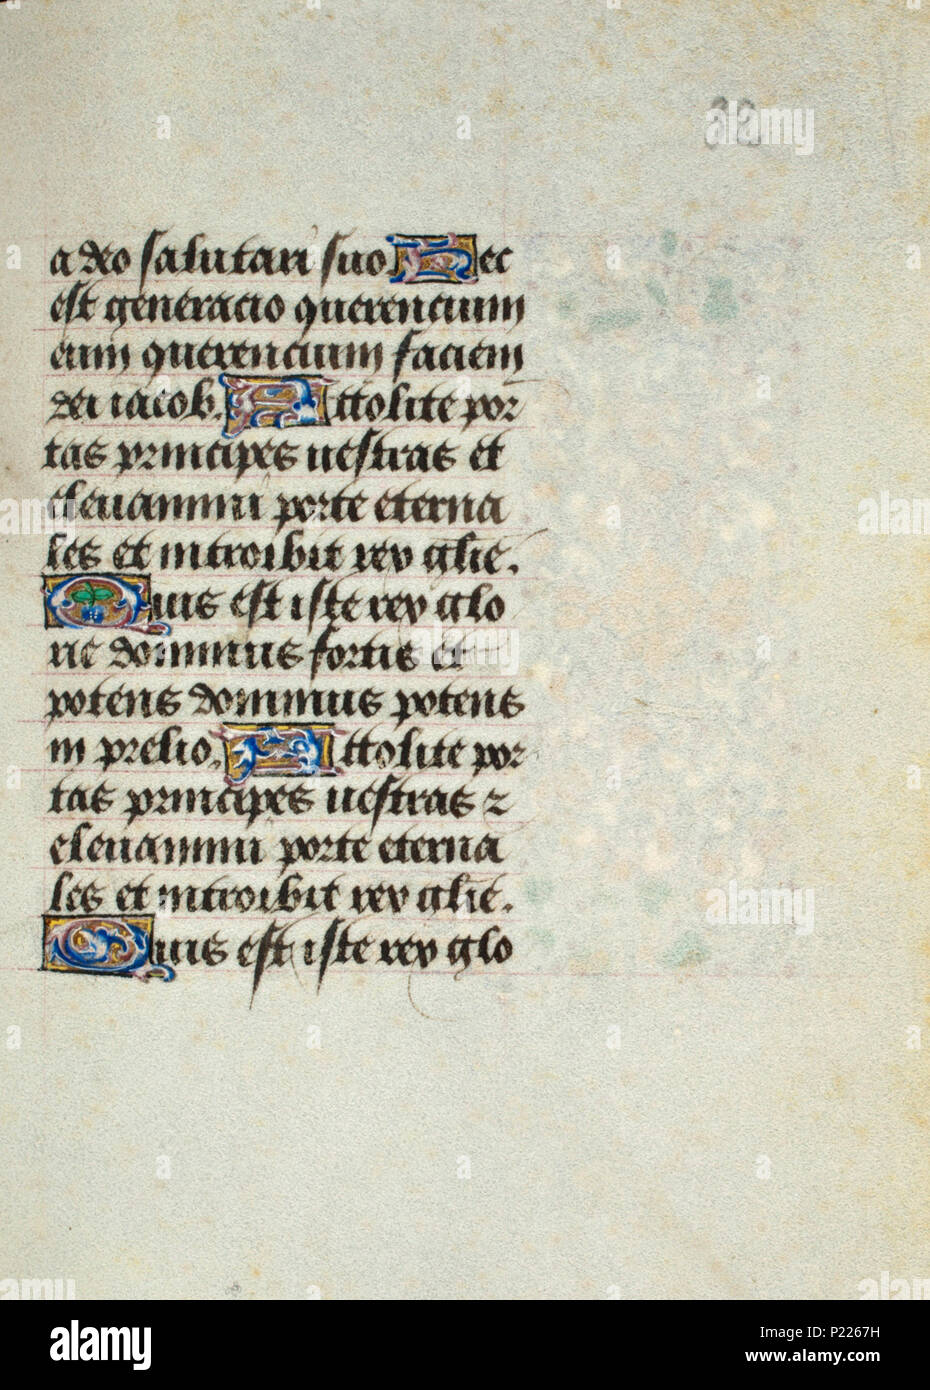 32
a deo salutari suo. Hec
est generacio querencium
eum querencium faciem
dei iacob. Attollite por
tas principes uestras et
eleuamini porte eterna
les et introibit rex glīe.
Quis est iste rex glo
rie dominus fortis et
potens dominus potens
in prelio. Attollite por
tas principes uestras ⁊
eleuamini porte eterna
les et introibit rex glīe.
Quis est iste rex glo
alamy
Image ID: P2267H
www.alamy.com